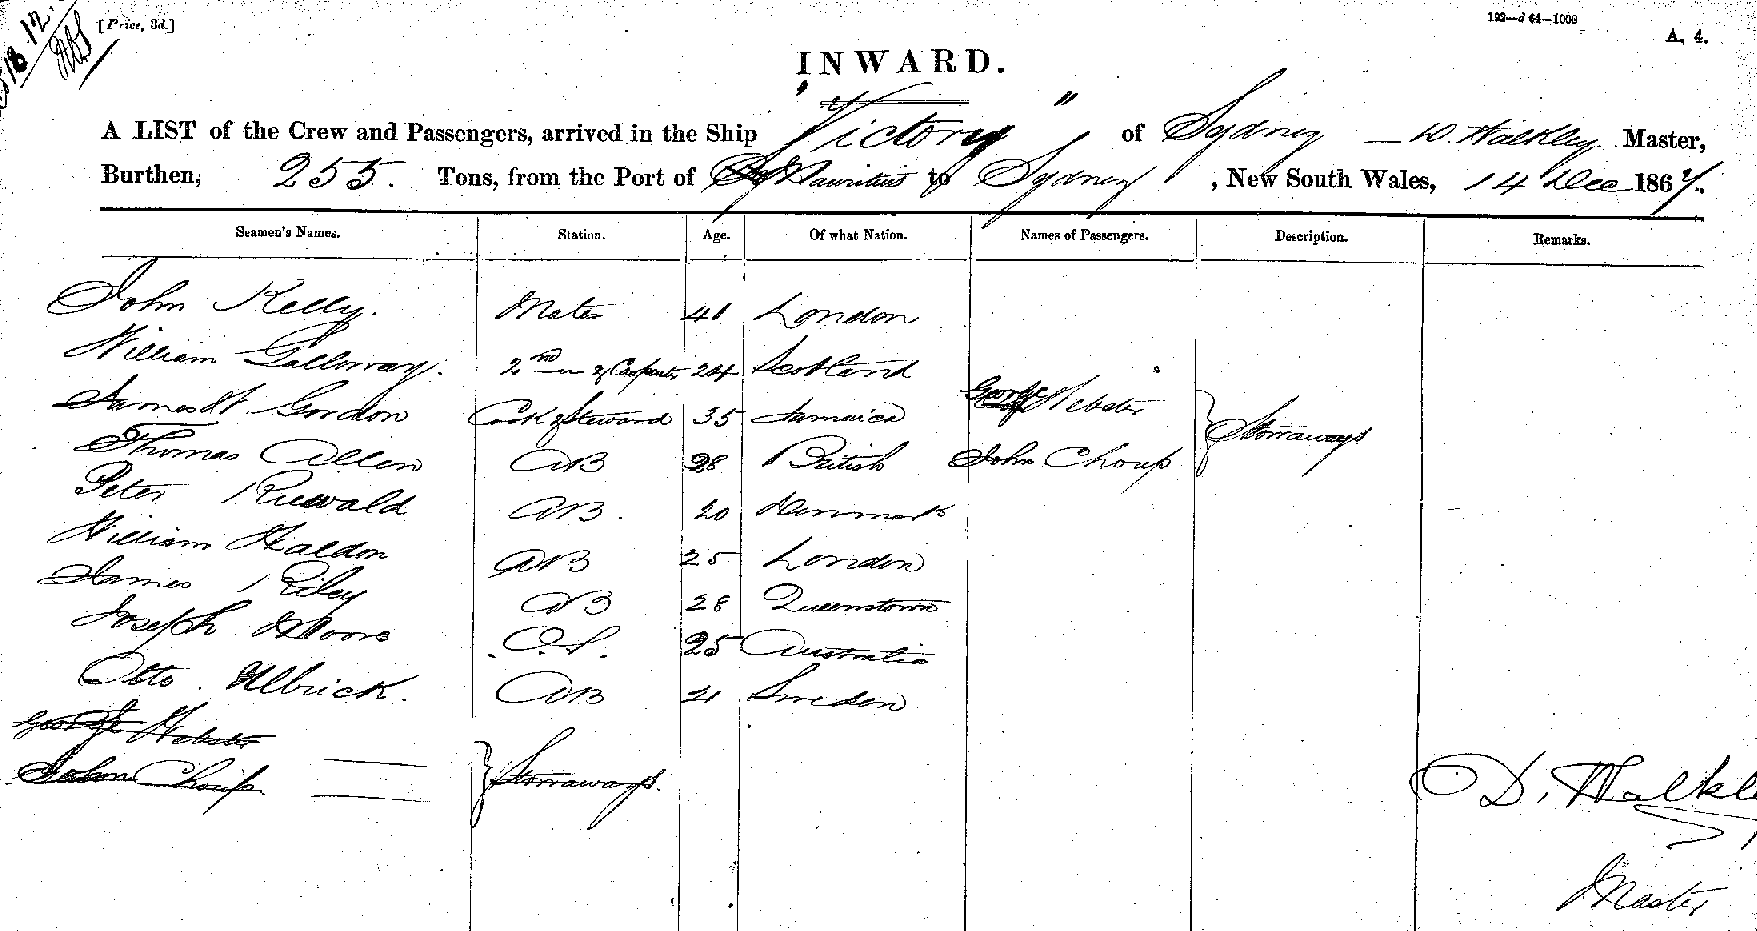 18.12.
[Price, 3d.]
192—d 64—1000
A. 4.
INWARD.
A LIST of the Crew and Passengers, arrived in the Ship "Victory" of Sydney — D. Walkley Master,
Burthen, 255. Tons, from the Port of Mauritius to Sydney, New South Wales, 14 Dec 1867.
Seamen's Names. Station. Age. Of what Nation. Names of Passengers. Description. Remarks.
John Kelly. Mate 41 London
William Galloway. 2nd " & Carpenter 24 Scotland
George Webster
James W Gordon Cook & Steward 35 Jamaica
Stowaways
Thomas Allen AB 28 British John Choup
Peter Ruwald AB. 20 Denmark
William Haldon AB 25 London
James Riley AB 28 Queenstown
Joseph Moore O.S. 25 Australia
Otto Ulbrick. AB 21 Sweden
George Webster
John Choup Stowaways.
D. Walkl
Master